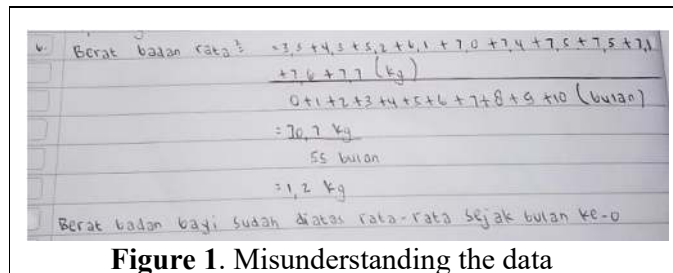 b. Berat badan rata² = 3,5 + 4,3 + 5,2 + 6,1 + 7,0 + 7,4 + 7,5 + 7,5 + 7,1
+7,6 + 7,7 (kg)
0+1+2+3+4+5+6+7+8+9+10 (bulan)
= 70,7 kg
55 bulan
= 1,2 kg
Berat badan bayi sudah diatas rata-rata sejak bulan ke-0
Figure 1. Misunderstanding the data